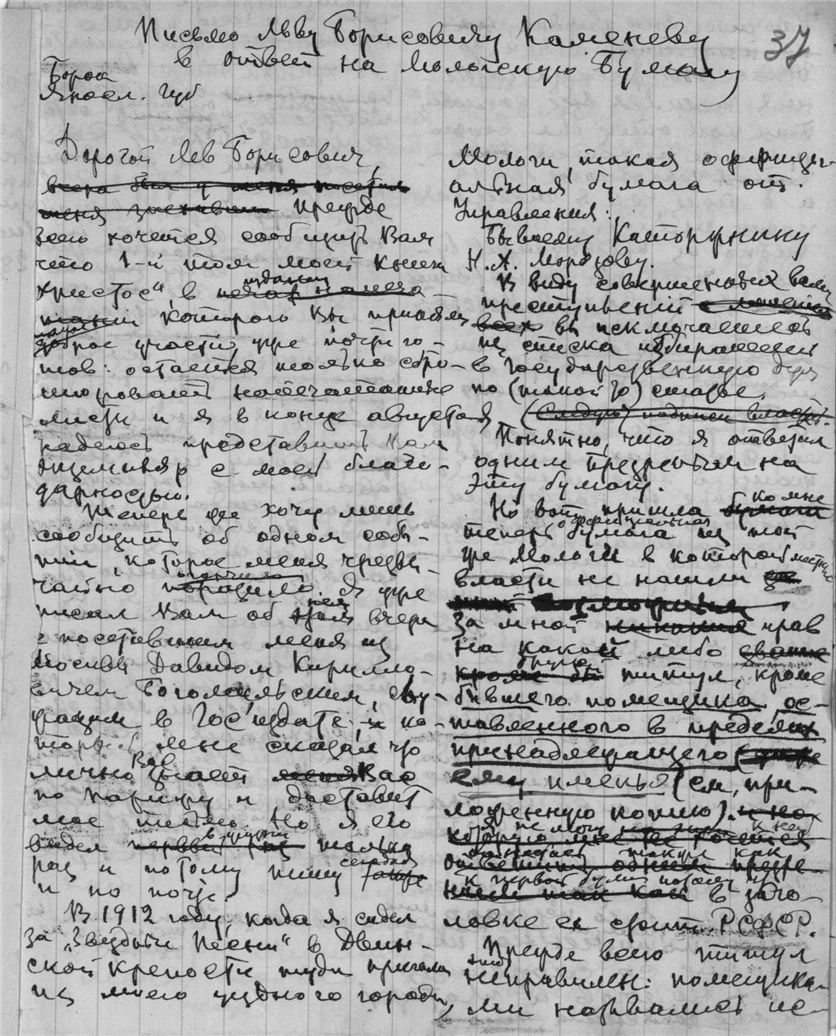 Письмо Льву Борисовичу Каменеву
37
в ответ на Мологскую Бумагу
Борок
Яросл. губ
Дорогой Лев Борисович,
прежде
всего хочется сообщить Вам
что 1-й том моей книги
"Христос", в издании
которого Вы приняли
участие, уже почти го-
тов: остается только сбро-
шюровать напечатанные
листы и я в конце августа
надеюсь представить Вам
экземпляр с моей благо-
дарностью.
Теперь же хочу лишь
сообщить об одном собы-
тии, которое меня чрезвы-
чайно огорчило. Я уже
писал Вам об нем вчера
с посетившим меня из
Москвы Давидом Кирилло-
вичем Богомильским, слу-
жащим в Госиздате, ко-
торый мне сказал что
лично Вас знает
и доставит
мое письмо. Но я его
видел в другой только
раз и потому пишу сегодня
и по почте.
В 1912 году, когда я сидел
за "Звездные Песни" в Двин-
ской крепости туда прислали
из моего уездного города,
Мологи, такая оффици-
альная бумага от.
Управления:
Бывшему Каторжнику
Н. А. Морозову.
В виду совершенных вами
преступлений
вы исключаетесь
из списка избирателей
в Государственную думу
по (такой то) статье.
(Следуют подписи властей).
Понятно, что я ответил
одним презреньем на
эту бумагу.
Но вот пришла ко мне
теперь официальная бумага из той
же Мологи в которой местные
власти не нашли
за мной прав
на какой либо
другой титул, кроме
бывшего помещика ос-
тавленного в пределах
принадлежащего
ему именья (см. при-
ложенную копию).
в заго-
ловке ея стоит Р.С.Ф.С.Р.
Прежде всего титул
этот неправилен: помещика-
ми назывались не-